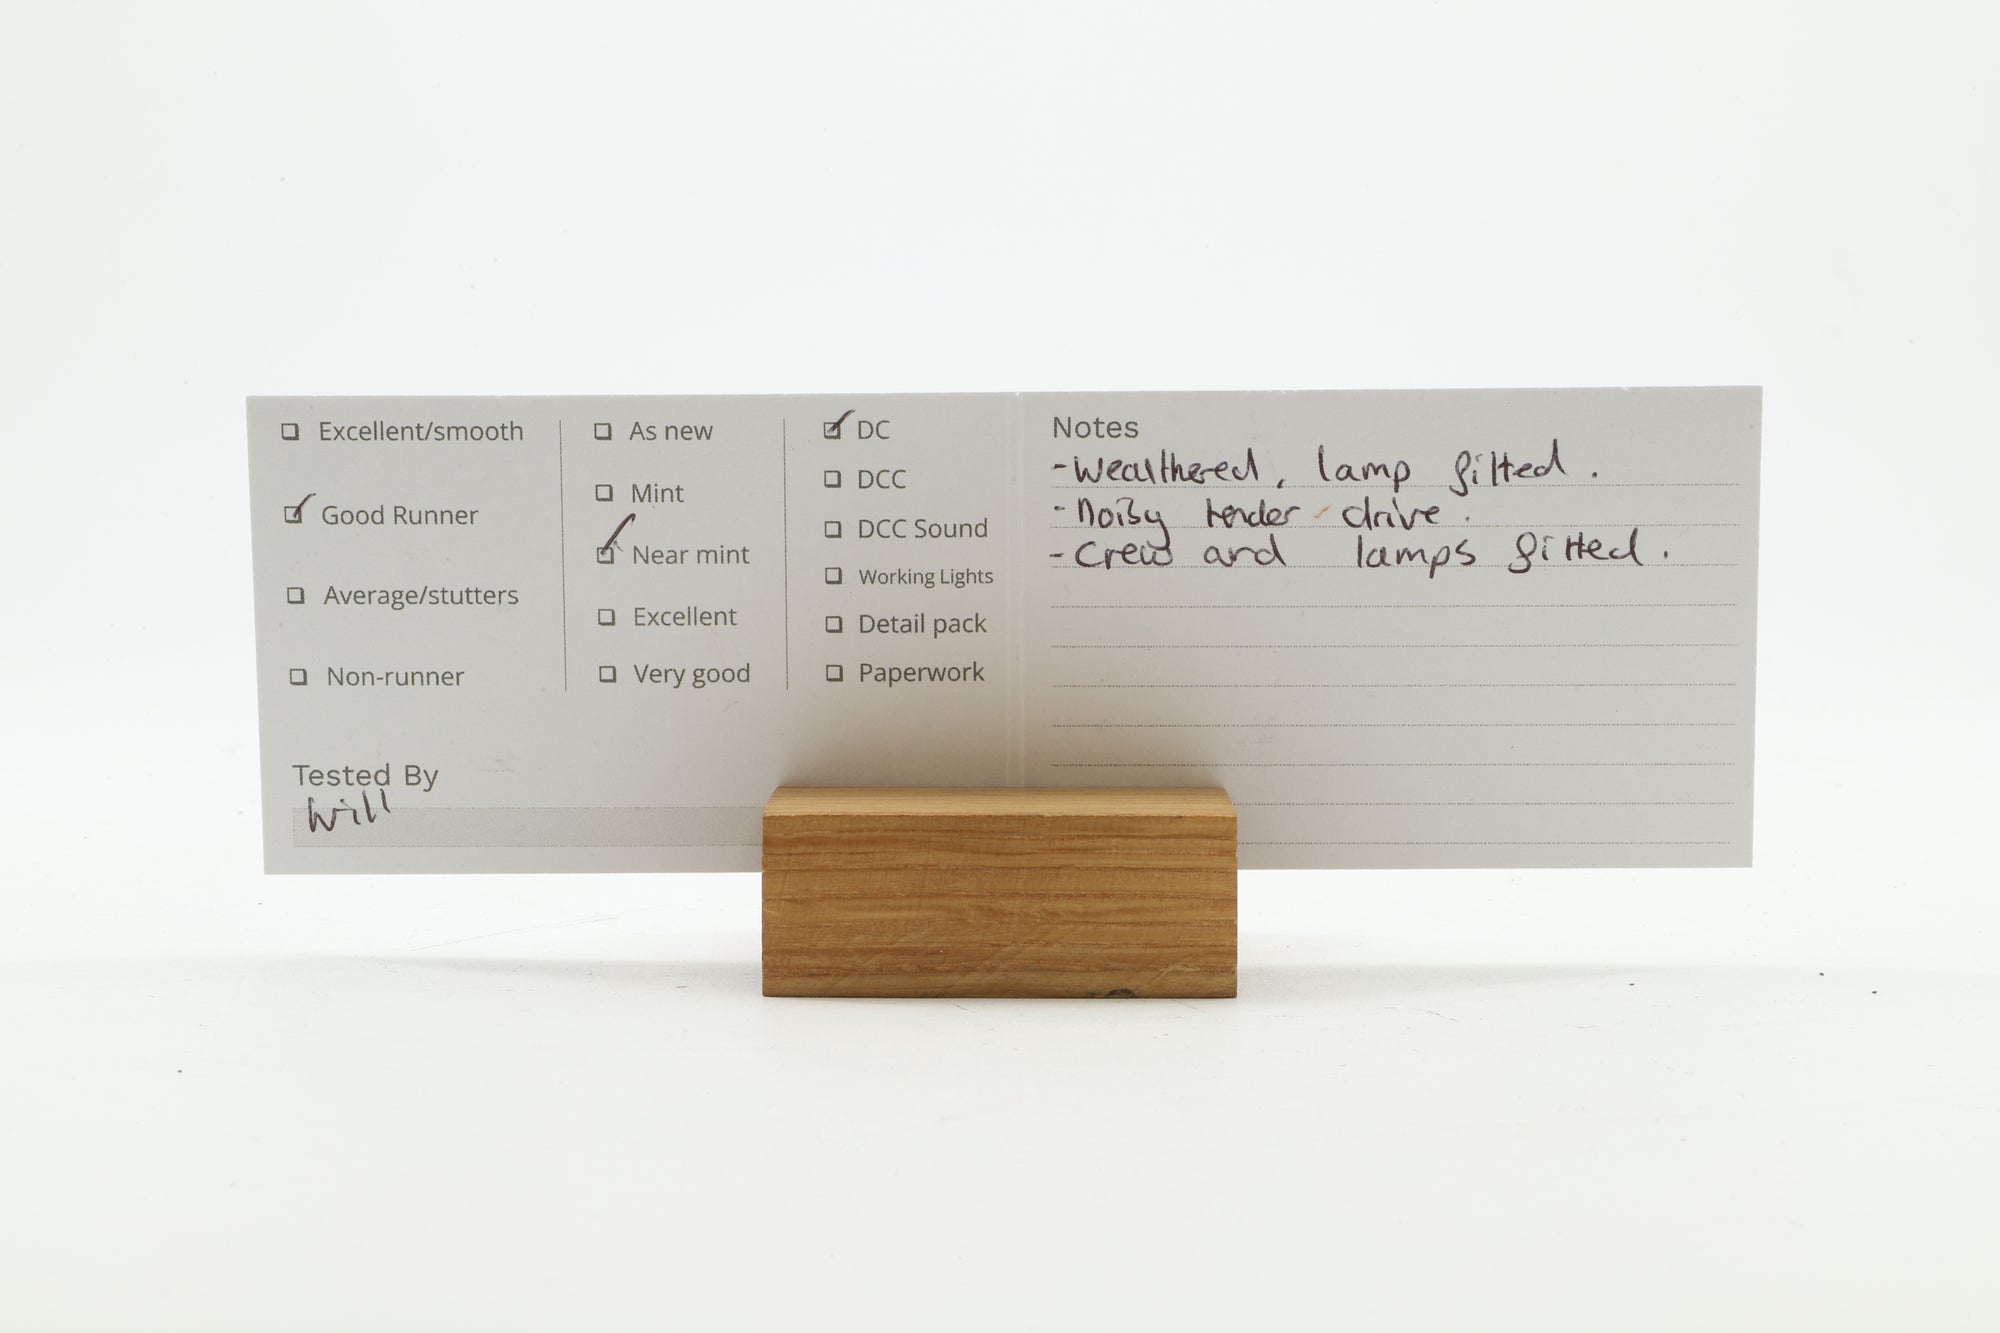 Excellent/smooth
Good Runner
Average/stutters
Non-runner
As new
Mint
Near mint
Excellent
Very good
DC
DCC
DCC Sound
Working Lights
Detail pack
Paperwork
Tested By
Will
Notes
- Weathered, lamp fitted.
- Noisy tender drive.
- Crew and lamps fitted.